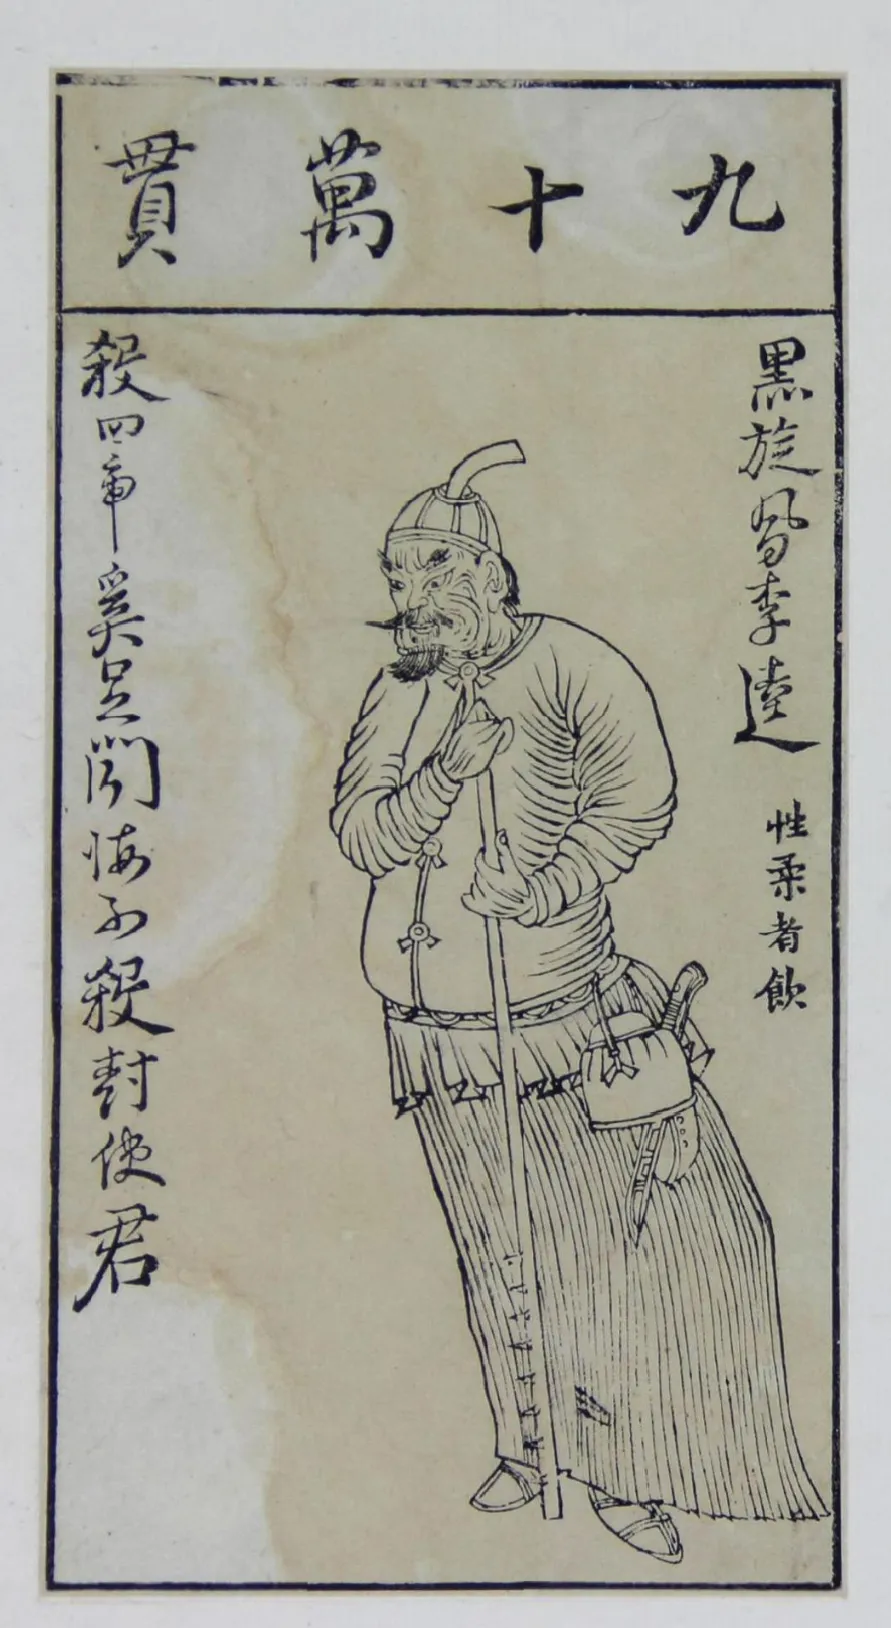 九十萬貫
黑旋風李逵
性柔者飲
殺四虎奚足聞悔不殺封使君